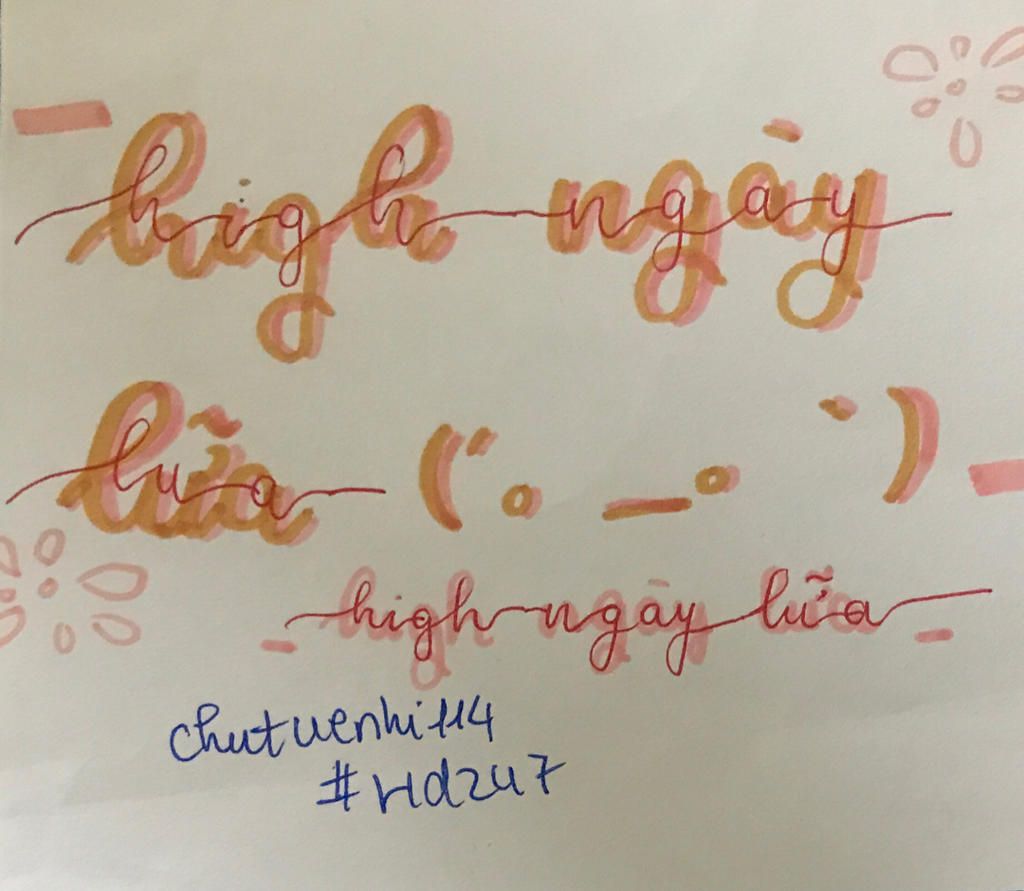 high ngày
lữa (“. _. ` )
high ngày lữa
chutuenhi114
#Hd247